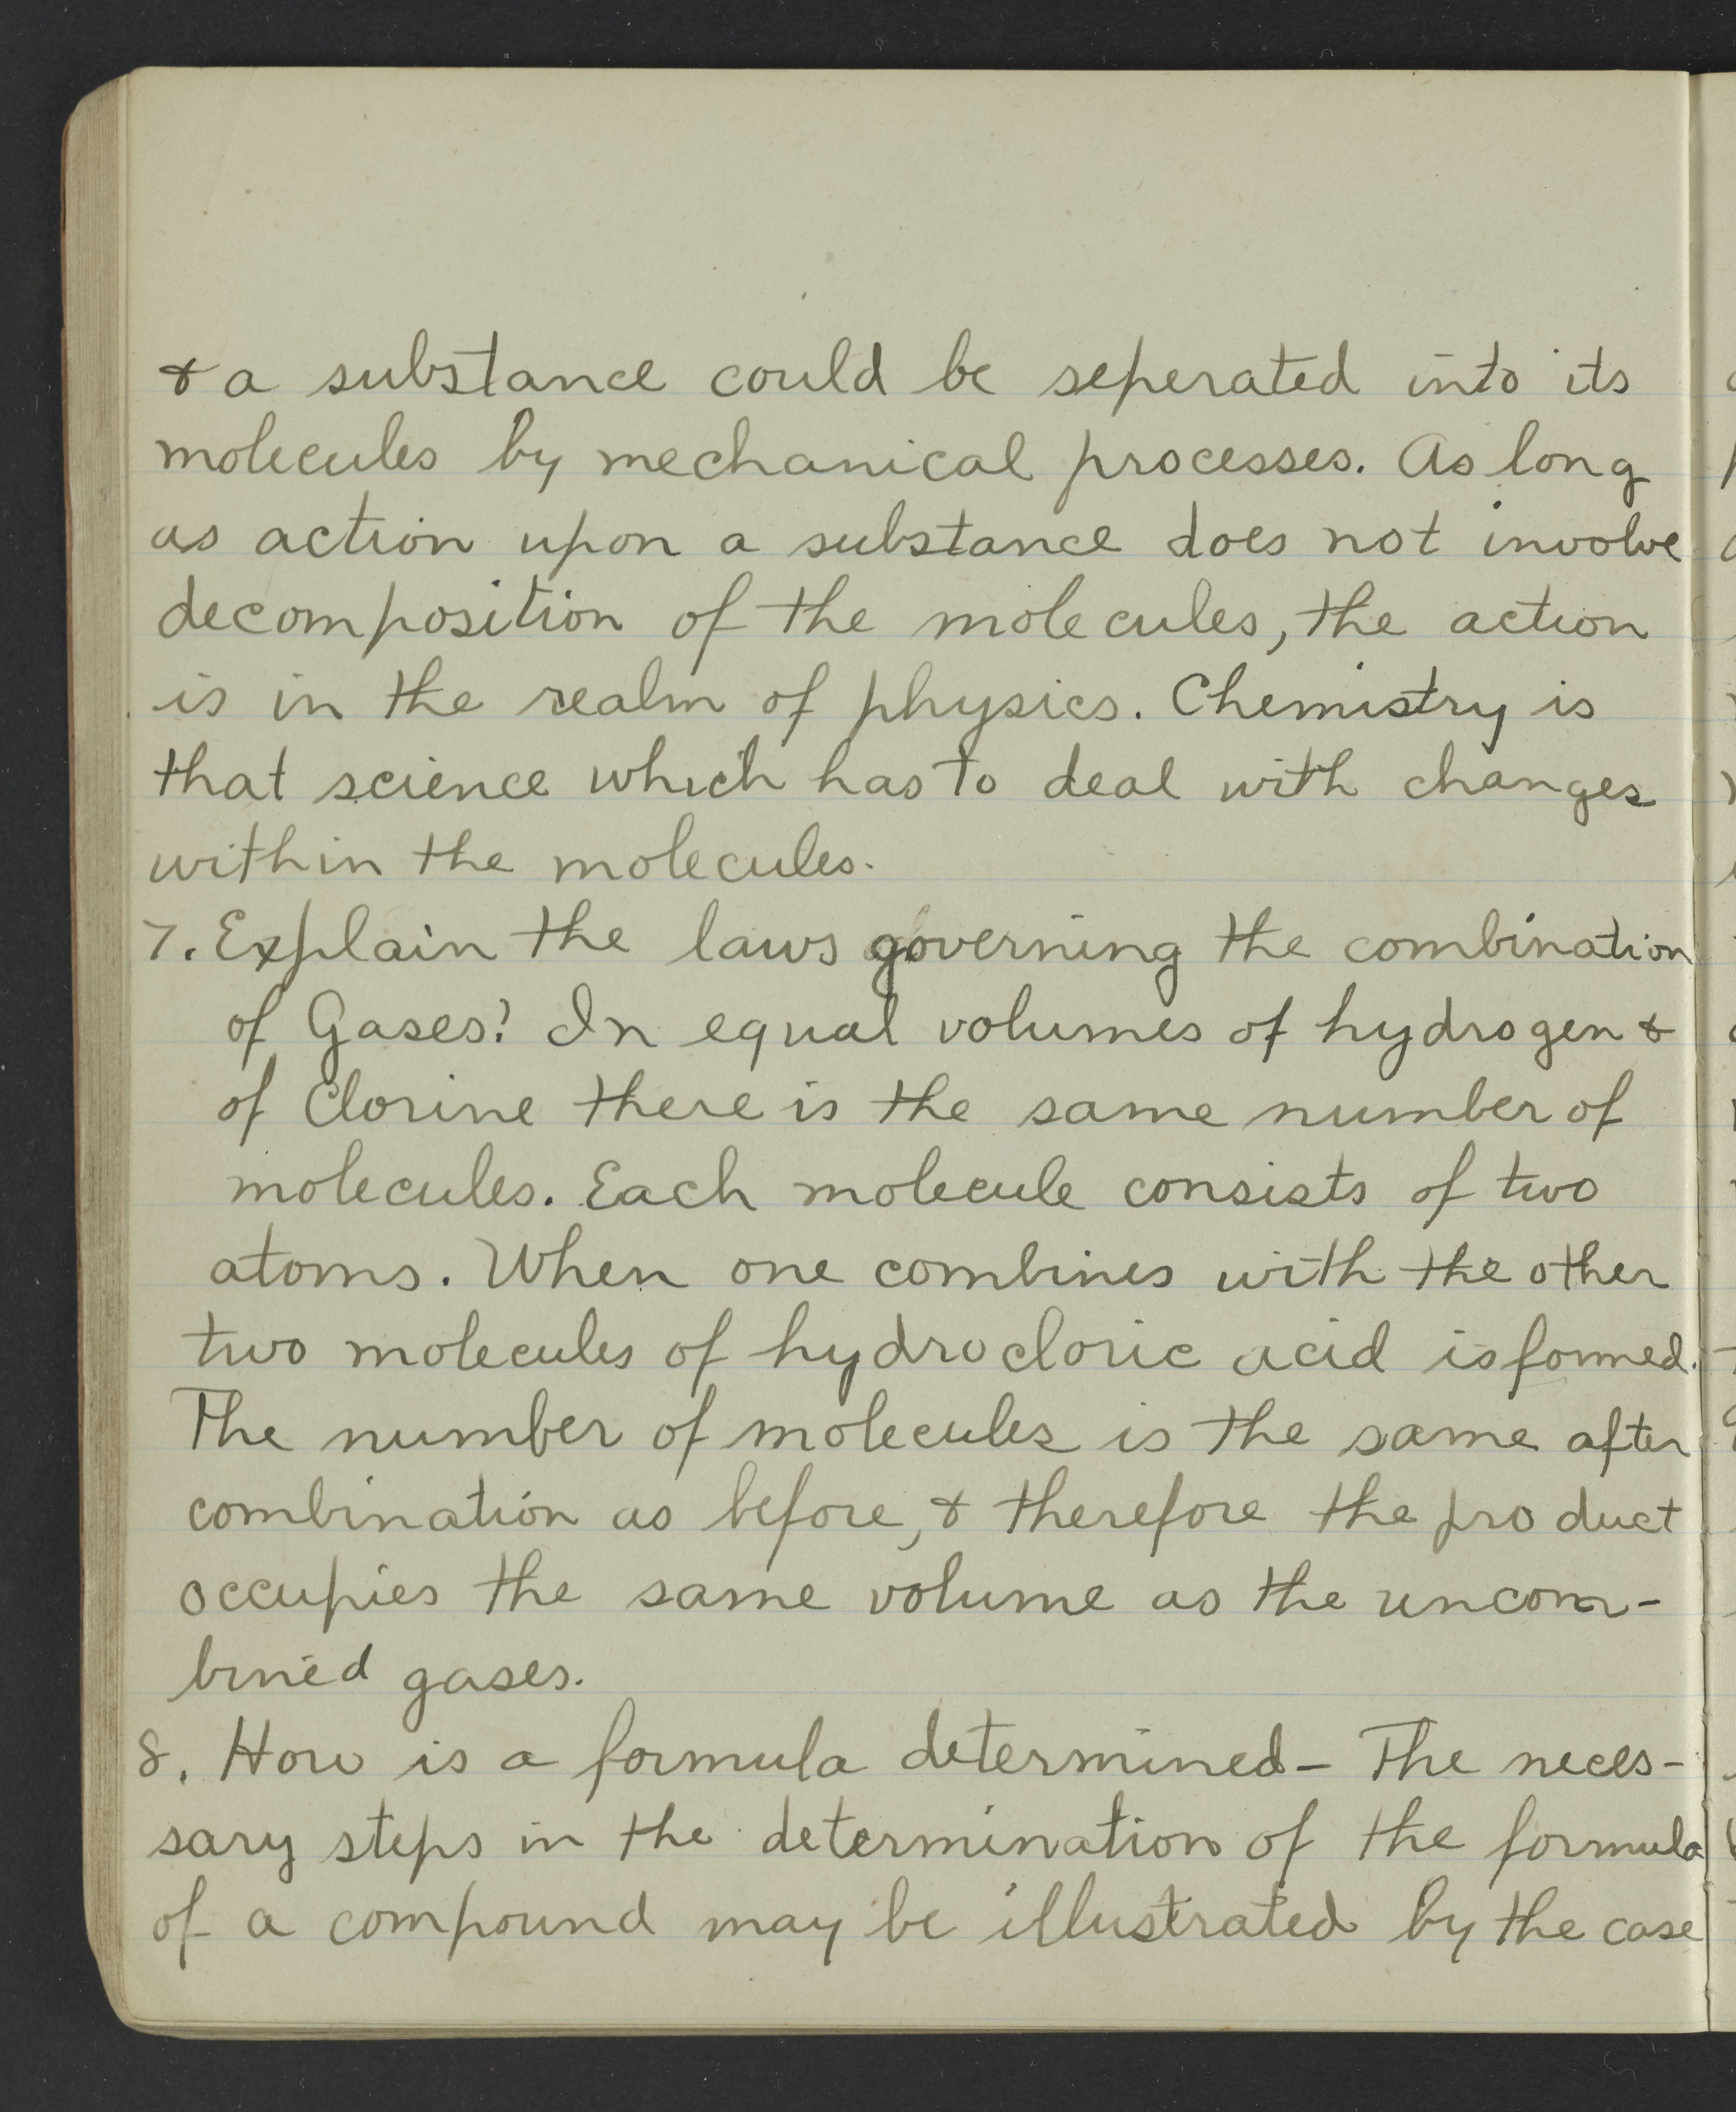 & a substance could be seperated into its
molecules by mechanical processes. As long
as action upon a substance does not involve
decomposition of the molecules, the action
is in the realm of physics. Chemistry is
that science which has to deal with changes
within the molecules.
7. Explain the laws governing the combination
of Gases? In equal volumes of hydrogen &
of Clorine there is the same number of
molecules. Each molecule consists of two
atoms. When one combines with the other
two molecules of hydrocloric acid is formed.
The number of molecules is the same after
combination as before, & therefore the product
occupies the same volume as the uncom-
bined gases.
8. How is a formula determined - The neces-
sary steps in the determination of the formula
of a compound may be illustrated by the case